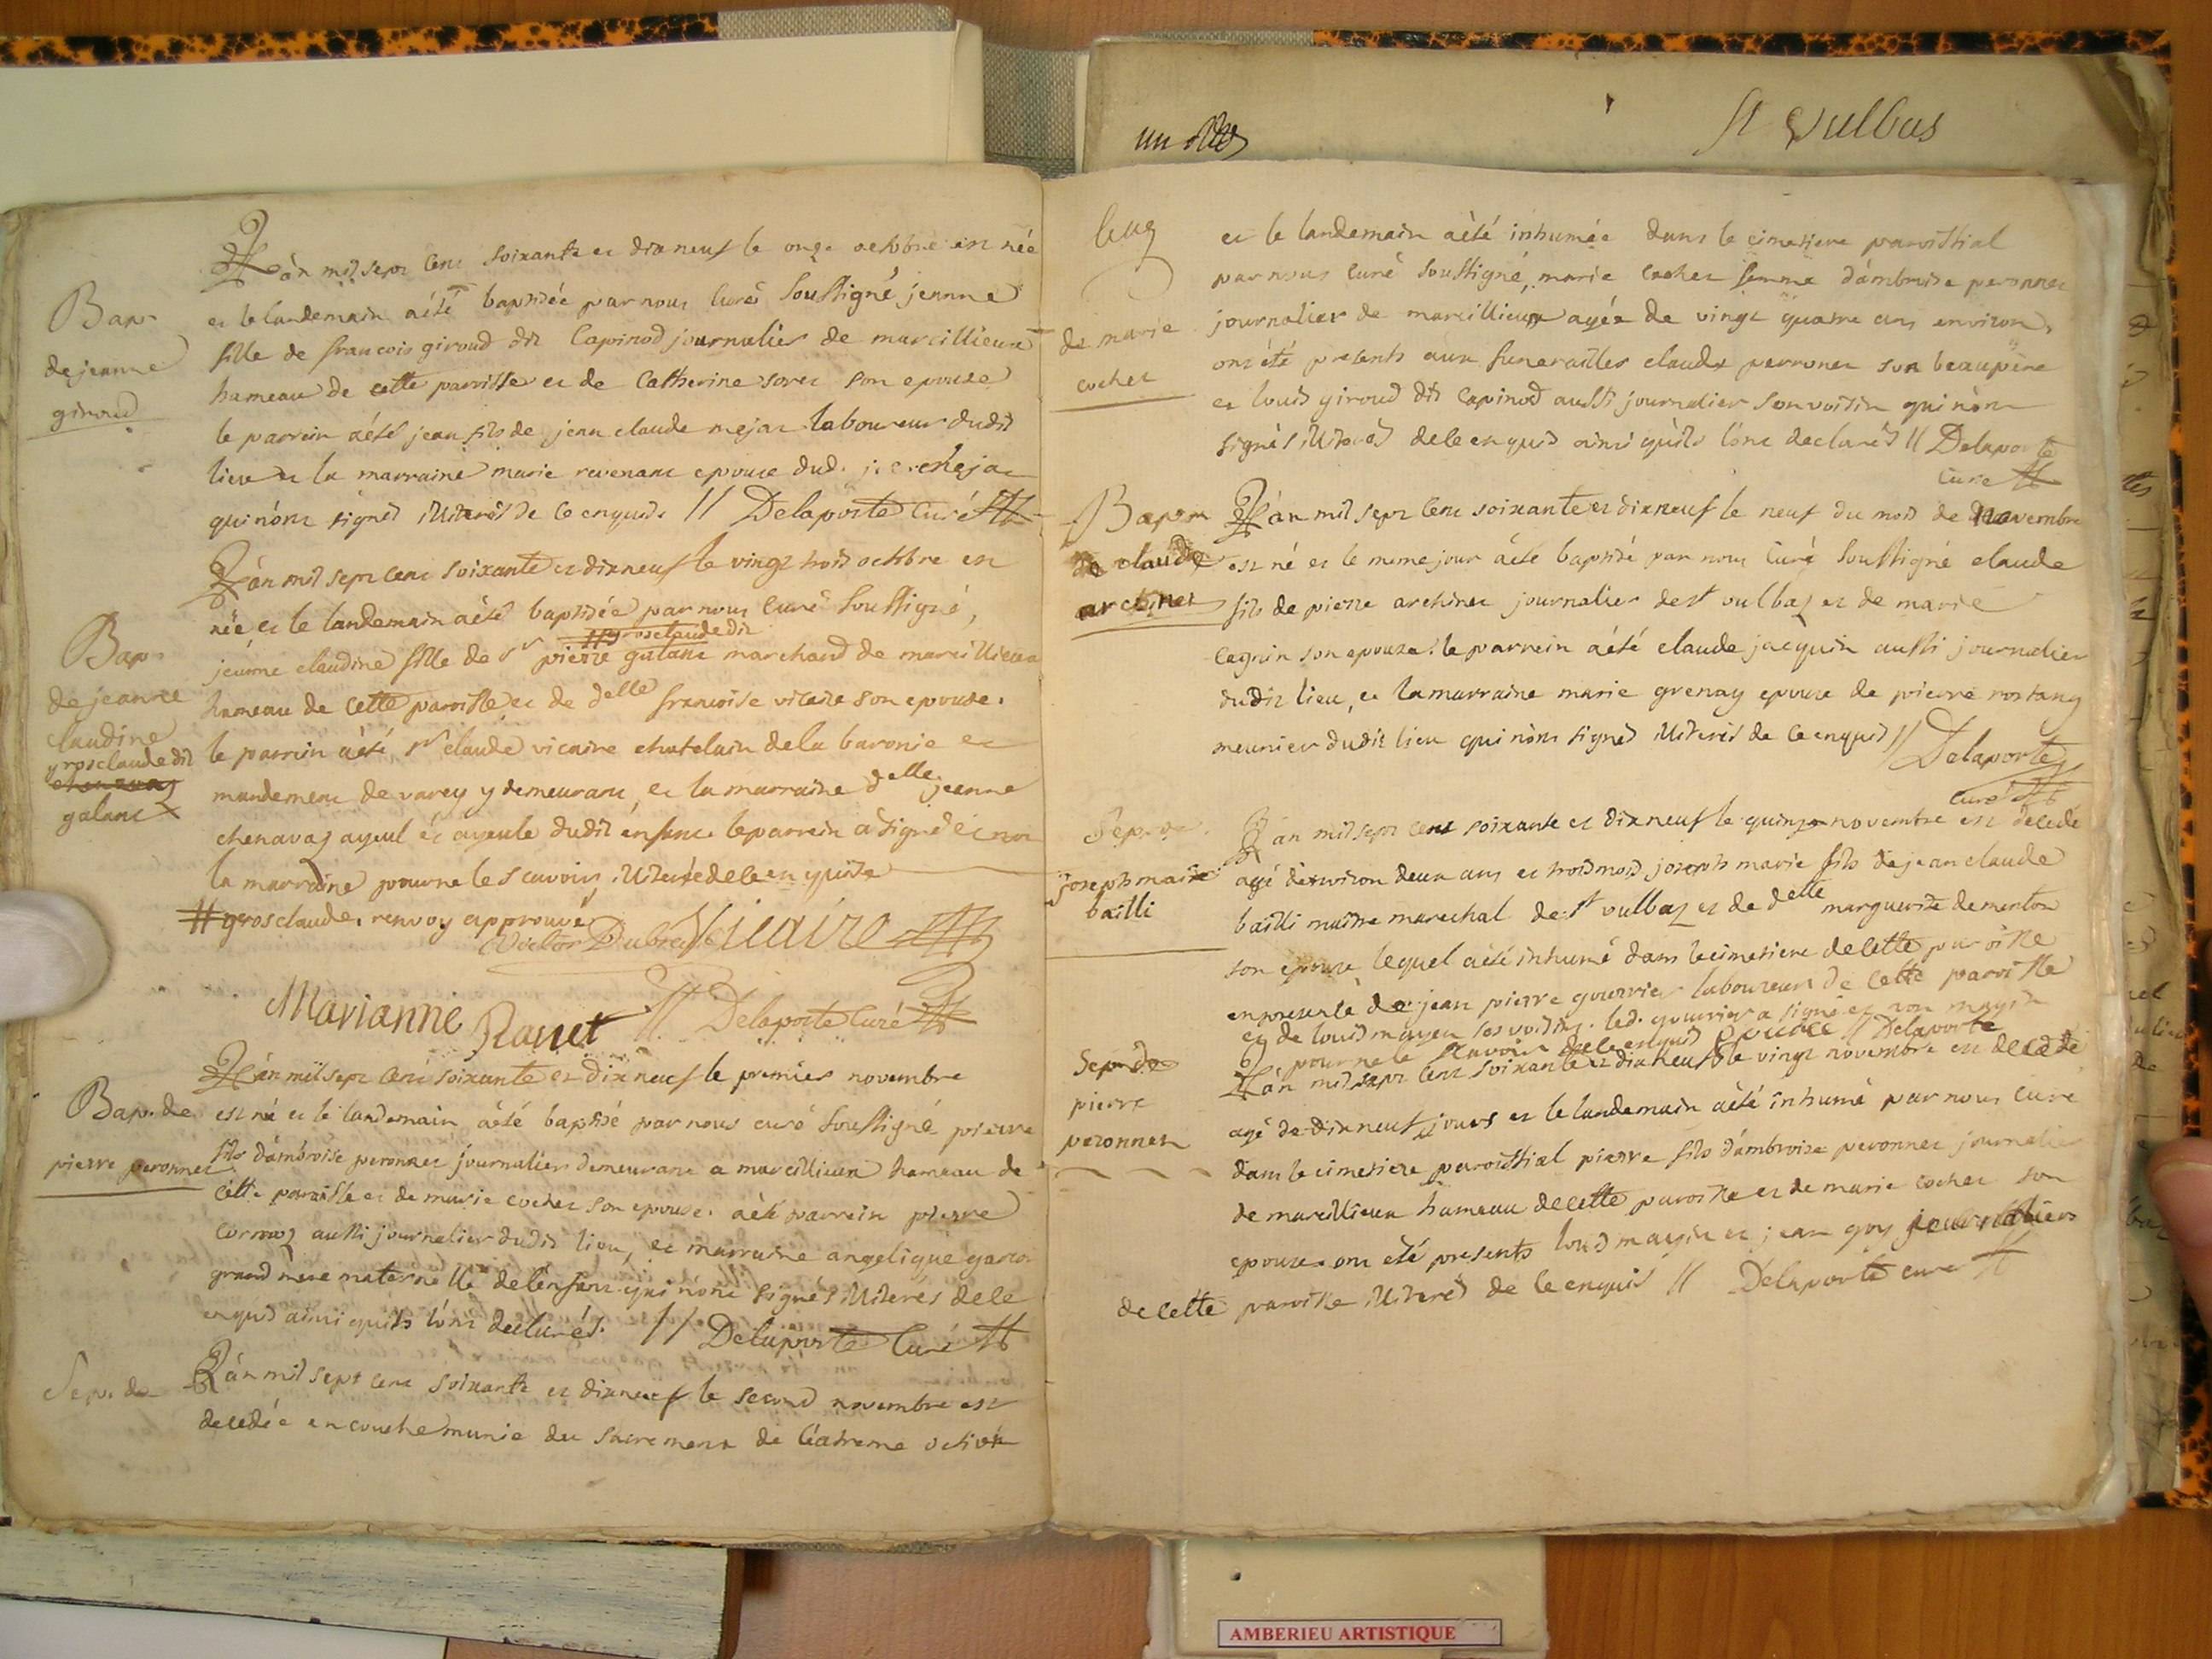 St Vulbas
Bap.
de jeanne
giroud
L'an mil sept cent soixante et dixneuf le onze octobre est née
et le landemain a été baptisée par nous curé soussigné jeanne
fille de francois giroud dit Capinod journalier de marcillieux
hameau de cette paroisse et de Catherine soret son epouze
le parrein a été jean fils de jean claude mejat laboureur dudit
lieu et la marraine marie revenant epouse dud. j. c. mejat
qui n'ont signés illiterés de ce enquis // Delaporte Curé
Bap.
de jeanne
claudine
grosclaude dit
chenavaz
galant
L'an mil sept cent soixante et dixneuf le vingt trois octobre est
née et le landemain a été baptisée par nous curé soussigné,
# grosclaude dit
jeanne claudine fille de sr pierre galant marchand de marcillieux
hameau de cette paroisse et de delle francoise vicaire son epouze.
le parrin a été sr claude vicaire chatelain de la baronie et
mandement de varey y demeurant, et la marraine delle jeanne
chenavaz ayeul et ayeule dudit enfant. le parrein a signé et non
la marraine pour ne le scavoir, illiterée de ce enquise
# grosclaude, renvoy approuvé
Victor Dubreuil Vicaire
Marianne Ranet // Delaporte Curé
Bap. de
pierre peronnet
L'an mil sept cent soixante et dixneuf le premier novembre
est né et le landemain a été baptisé par nous curé soussigné pierre
fils d'ambroise peronnet journalier demeurant a marcillieux hameau de
cette paroisse et de marie cochet son epouse. a été parrein pierre
cormoz aussi journalier dudit lieu, et marraine angelique garcon
grand mere maternelle de l'enfant qui n'ont signés illiterés de ce
enquis ainsi qu'ils l'ont declarés. // Delaporte Curé
Sep. de
L'an mil sept cent soixante et dixneuf le second novembre est
decedée en couche munie du sacrement de l'extreme onction
de marie
cochet
et le landemain a été inhumée dans le cimetiere paroissial
par nous curé soussigné, marie cochet femme d'ambroise peronnet
journalier de marcillieux agée de vingt quatre ans environ,
ont été presents aux funerailles claude perronet son beaupere
et louis giroud dit Capinod aussi journalier son voisin qui n'ont
signés illiterés de ce enquis ainsi qu'ils l'ont declarés // Delaporte
Curé
Baptm
de claude
archinet
L'an mil sept cent soixante et dixneuf le neuf du mois de novembre
est né et le meme jour a été baptisé par nous curé soussigné claude
fils de pierre archinet journalier de st vulbaz et de marie
cagnin son epouze. le parrein a été claude jacquin aussi journalier
dudit lieu, et la marraine marie grenay epouse de pierre rostang
meunier dudit lieu qui n'ont signés illiterés de ce enquis // Delaporte
curé
Sep. de
joseph marie
bailli
L'an mil sept cent soixante et dixneuf le quinze novembre est decedé
agé d'environ deux ans et trois mois joseph marie fils de jean claude
bailli maitre marechal de st vulbaz et de delle marguerite dementon
son epouze lequel a été inhumé dans le cimetiere de cette paroisse
en presence de jean pierre gourrier laboureur de cette paroisse
et de louis mayen ses voisins. led. gourrier a signé et non mayen
pour ne le scavoir de ce enquis // Delaporte
Sep. de
pierre
peronnet
L'an mil sept cent soixante et dixneuf le vingt novembre est decedé
agé de dixneuf jours et le landemain a été inhumé par nous curé
dans le cimetiere paroissial pierre fils d'ambroise peronnet journalier
de marcillieux hameau de cette paroisse et de marie cochet son
epouze. ont eté presents louis mayen et jean goy journaliers
de cette paroisse illiterés de ce enquis // Delaporte curé
AMBERIEU ARTISTIQUE